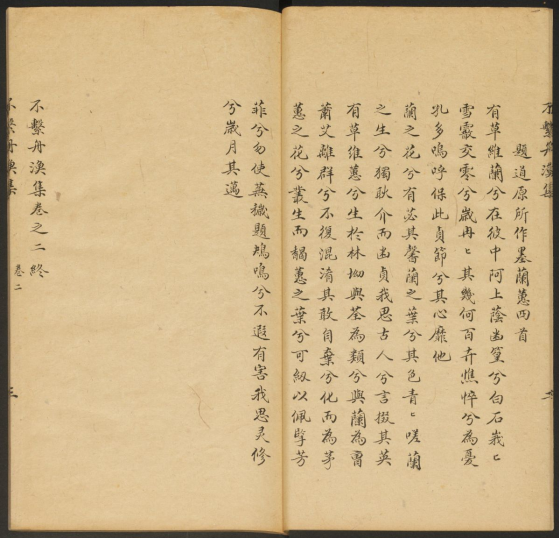 不繫舟漁集
題道原所作墨蘭蕙四首
有草維蘭兮在彼中阿上蔭幽篁兮白石峩〻
雪霰交零兮歲冉〻其幾何百卉憔悴兮為憂
孔多嗚呼保此貞節兮其心靡他
蘭之花兮有苾其馨蘭之葉兮其色青〻嗟蘭
之生兮獨耿介而幽貞我思古人兮言掇其英
有草維蕙兮生於林坳與荃為類兮與蘭為曹
蕭艾離群兮不復混淆其敢自棄兮化而為茅
蕙之花兮叢生而馤蕙之葉兮可紉以佩擥芳
菲兮勿使蕪穢題鴂鳴兮不遐有害我思灵修
兮歲月其邁
不繫舟漁集卷之二終
不繫舟漁集
卷二